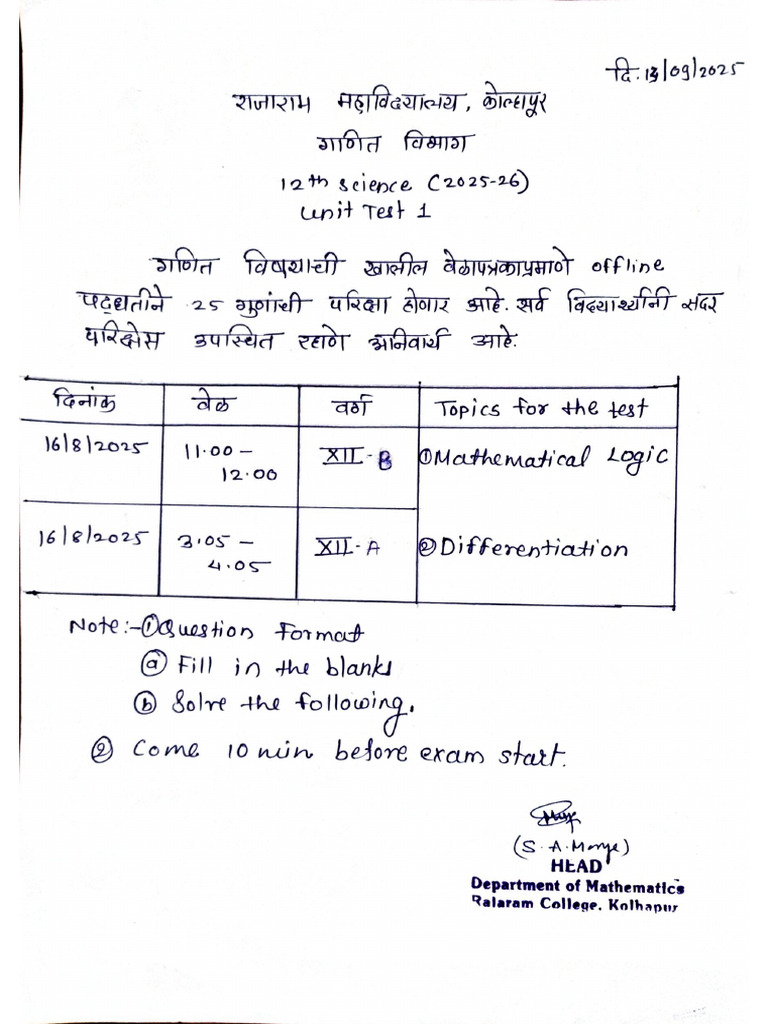 दि. 13/09/2025
राजाराम महाविद्यालय, कोल्हापूर
गणित विभाग
12th Science (2025-26)
Unit Test 1
गणित विषयाची खालील वेळापत्रकाप्रमाणे offline
पद्धतीने 25 गुणांची परिक्षा होणार आहे. सर्व विद्यार्थ्यांनी सदर
परिक्षेस उपस्थित रहाणे अनिवार्य आहे.
दिनांक वेळ वर्ग Topics for the test
16/8/2025 11.00 – 12.00 XII - B ① Mathematical Logic
16/8/2025 3.05 – 4.05 XII - A ② Differentiation
Note:- ① Question Format
ⓐ Fill in the blanks
ⓑ Solve the following.
② Come 10 min before exam start.
(S. A. Morye)
HEAD
Department of Mathematics
Rajaram College, Kolhapur